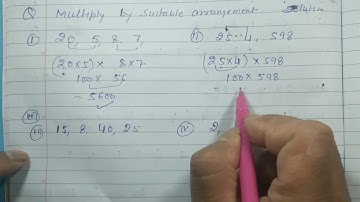 Q Multiply by Suitable arrangement Solution
(i) 20, 5, 8, 7
(20×5) × 8×7
100 × 56
= 5600
(ii) 25, 4, 598
(25×4) × 598
100 × 598
=
(iii) 15, 8, 40, 25
(iv) 2,